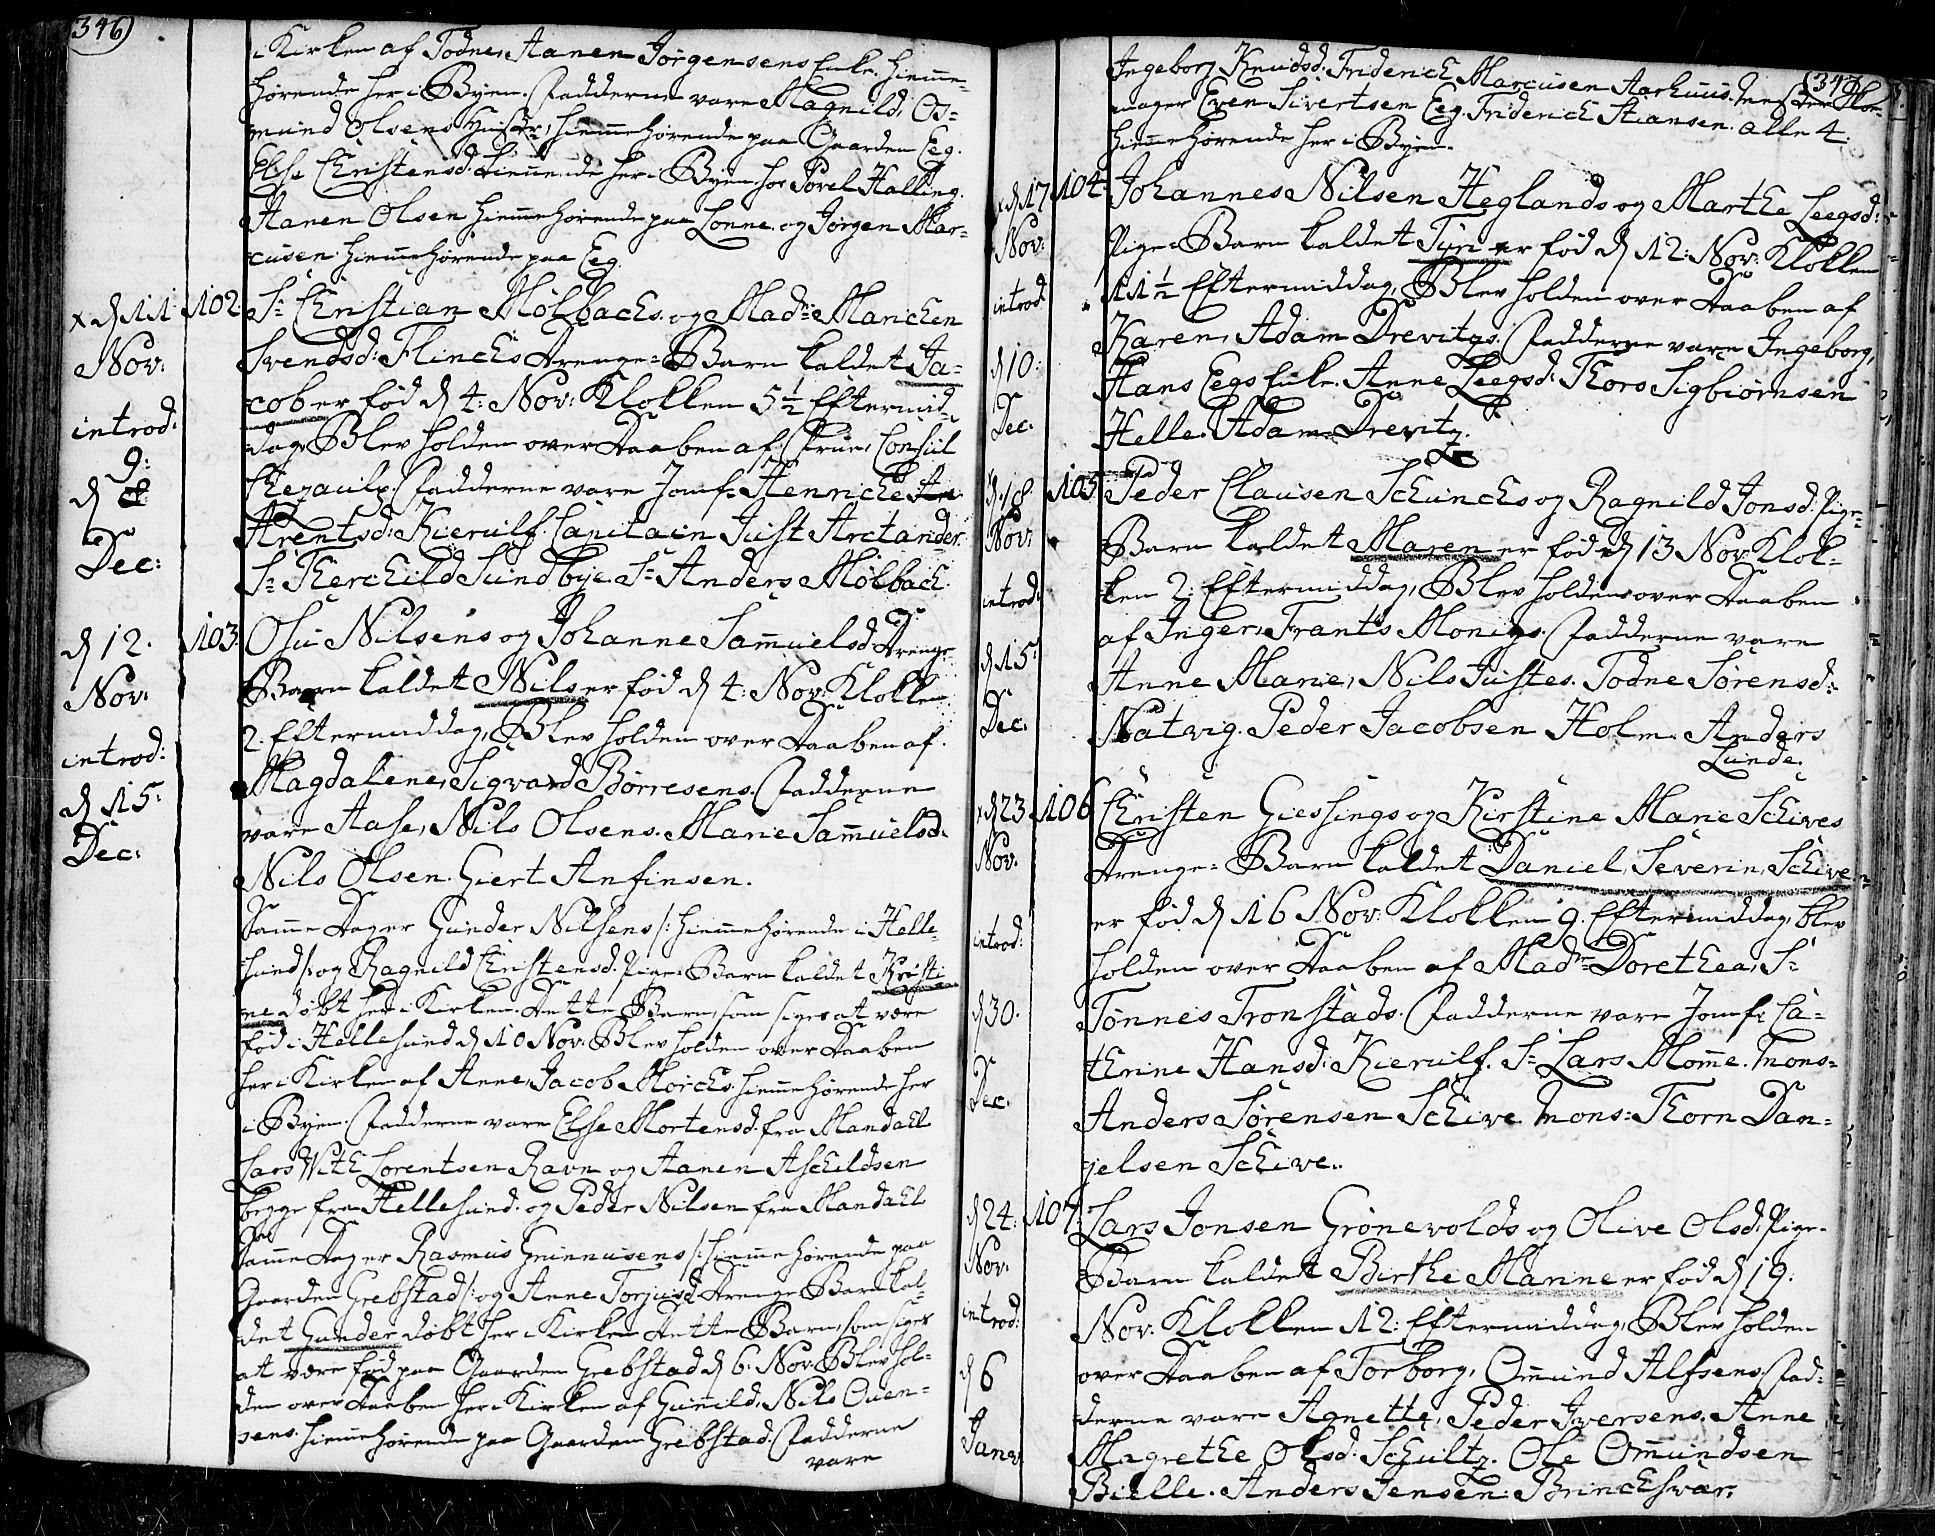 346)
i Kirken af Todne, Aanen Jörgensens Enke. hieme-
hörende her i Byen. Fadderne vare Magnild, Os-
mund Olsens Hustr: hiemehörende paa Gaarden Eeg.
Else Christensd: tienende her i Byen hos Povel Halling.
Aanen Olsen hiemehörende paa Lonne. og Jörgen Mar-
cusen hiemehörende paa Eeg
x d 11 Nov: introd: d 9: Dec:
102. Sr Christian Mölbachs og Madm Manchen
Svendsd: Flinchs Drenge-Barn kaldet Ja-
cob er föd d 4: Nov: Klokken 5 1/2 Eftermid-
dag, Blev holden over Daaben af Frue, Consul
Fadderne vare Jomfr Henriche
Arentsd: Kierulf. Capitain Just Arctander.
Sr Therchild Sundbye. Sr Anders Mölbach.
d 12. Nov: introd: d 15: Dec:
103. Osu Nilsens og Johanne Samuelsd Drenge
Barn kaldet Nils er föd d 4: Nov: Klokken
2: Eftermiddag, Blev holden over Daaben af
Magdalene, Sigvard Börresens. Fadderne
vare Aase, Nils Olsens. Marie Samuelsd.
Nils Olsen. Giert Anfinsen.
Same Dag er Gunder Nilsens /: hiemehörende i Helle-
sund:/ og Ragnild Christensd. Pige-Barn kaldet Kristi
ne döbt her i Kirken. Dette Barn, som siges at være
föd i Hellesund d 10 Nov: Blev holden over Daaben
her i Kirken af Anne, Jacob Morchs. hiemehörende her
i Byen. Fadderne vare Else Mortensd. fra Mandahl
Lars With Lorentsen Ravn og Aanen Aschildsen
begge fra Hellesund. og Peder Nilsen fra Mandahl
Same Dag er Rasmus Guinnusens /: hiemehörende paa
Gaarden Grebstad:/ og Anne Torjusd Drenge Barn kal-
det Gunder döbt her i Kirken Dette Barn, som siges
at være föd paa Gaarden Grebstad d 6. Nov: Blev hol-
den over Daaben her i Kirken af Gunild, Nils Ouen-
sens. hiemehörende paa Gaarden Grebstad. Fadderne
vare
(347
Ingeborg Knudsd: Friderich Marcusen Aarhuus.
mager Even Sivertsen Eeg. Friderich Stiansen. alle 4
hiemehörende her i Byen.
x d 17 Nov: introd: d 10: Dec:
104. Johannes Nilsen Heglands og Marthe Leegsd:
Pige-Barn kaldet Tyri er föd d 12: Nov: Klokken
11 1/2 Eftermiddag, Blev holden over Daaben af
Karen, Adam Drevitzs. Fadderne vare Ingeborg,
Hans Eegs Enke. Anne Leegsd. Thors Sigbiörnsen
Helle. Adam Drevitz.
d 18 Nov: introd: d 15: Dec:
105. Peder Clausen Schuncks og Ragnild Jonsd. Pige-
Barn kaldet Maren er föd d 13 Nov: Klok-
ken 2: Eftermiddag, Blev holden over Daaben
af Inger, Frants Monigs. Fadderne vare
Anne Marie, Nils Justes. Todne Sörensd:
Natvig. Peder Jacobsen Holm. Anders
Lunde.
x d 23 Nov: introd: d 30. Dec:
106 Christen Giessings og Kirstine Marie Schives
Drenge-Barn kaldet Daniel, Severin, Schive
er föd d 16 Nov: Klokken 9. Eftermiddag, blev
holden over Daaben af Madm Dorethea, Sr
Tönnes Tronstads. Fadderne vare Jomfr Ca-
therine Hansd: Kierulf. Sr Lars Mome. Mons-
Anders Sörensen Schive. Mons: Thorn Dan-
jelsen Schive.
d 24: Nov: introd: d 6 Janer
107. Lars Jonsen Grönevolds og Olive Olsd: Pige-
Barn kaldet Birthe Marine er föd d 19.
Nov: Klokken 12: Eftermiddag, Blev holden
over Daaben af Torborg, Omund Alfsens. Fad-
derne vare Agnette, Peder Iversens. Anne
Magrethe Olsd: Schultz. Ole Omundsen
Bielle. Anders Jensen: Brinchsvær.